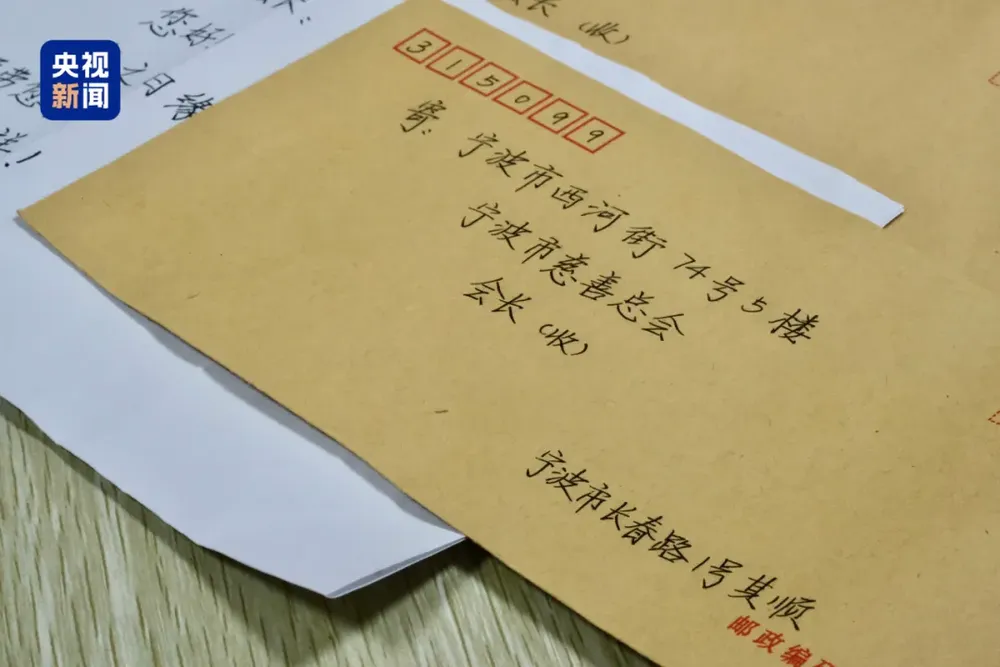 央视
新闻
您好!
长(收)
315099
寄:宁波市西河街74号5楼
宁波市慈善总会
会长(收)
宁波市长春路1号其顺
邮政编